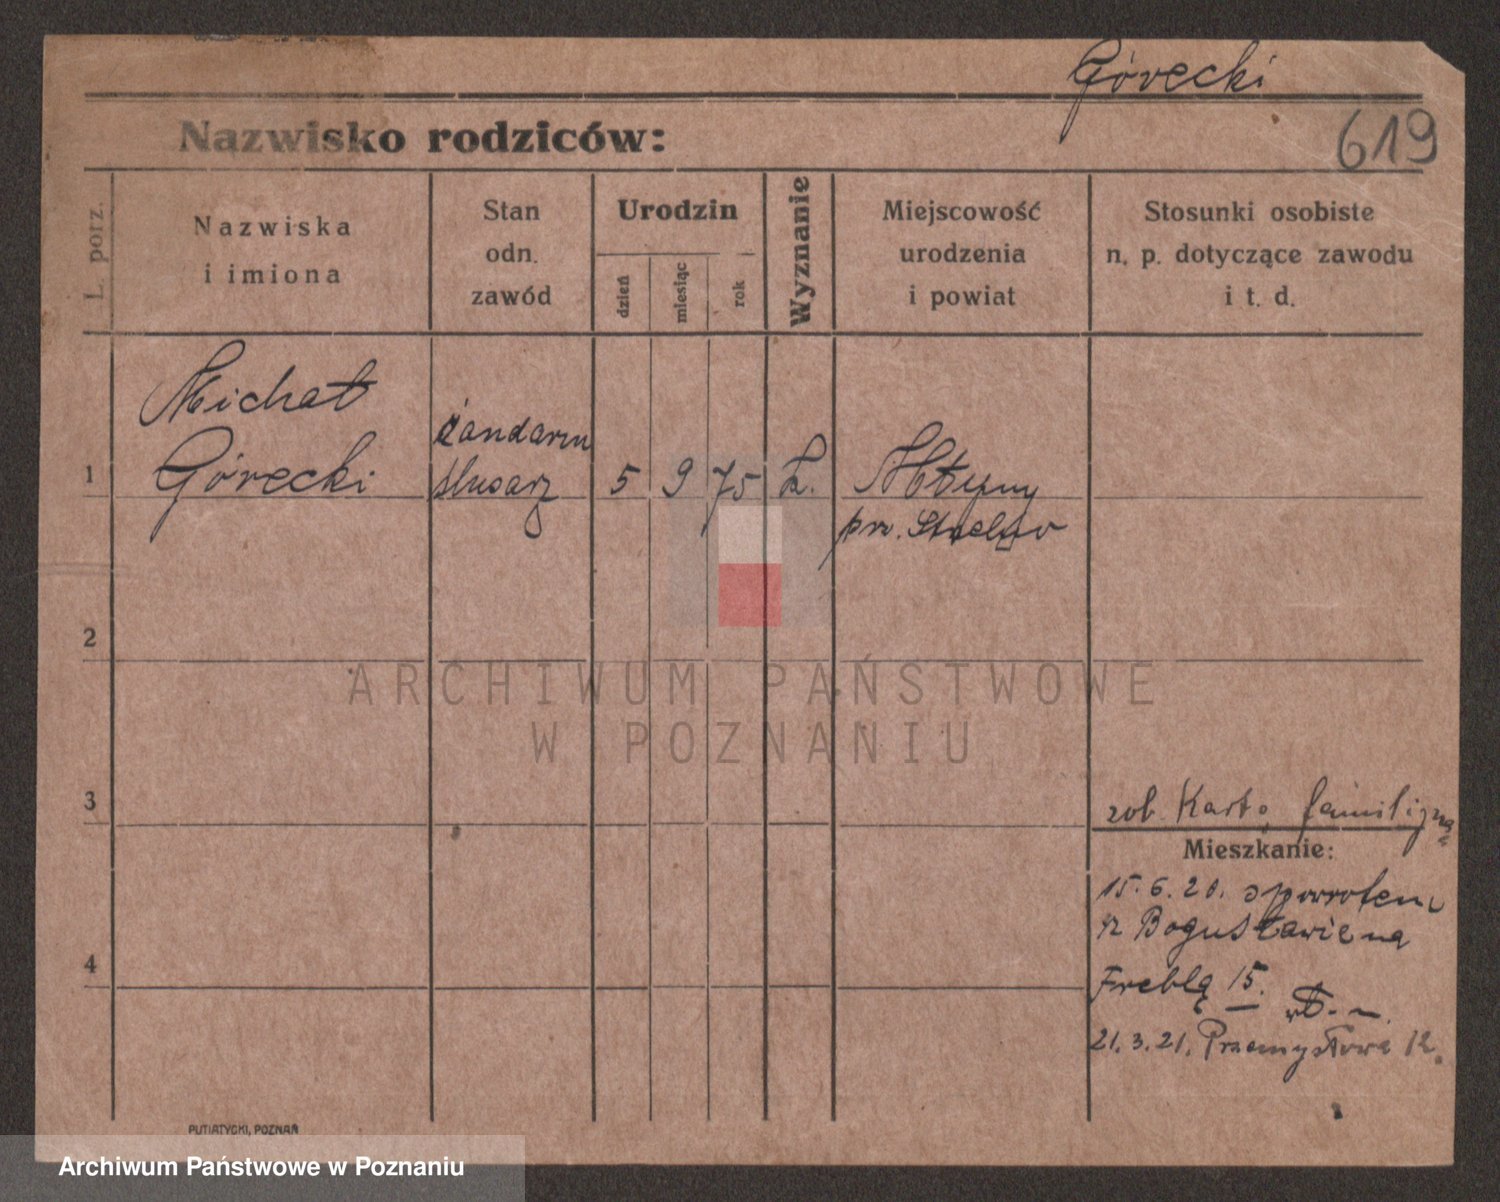 Górecki
619
Nazwisko rodziców:
L. porz.
Nazwiska
i imiona
Stan
odn.
zawód
Urodzin
dzień
miesiąc
rok
Wyznanie
Miejscowość
urodzenia
i powiat
Stosunki osobiste
n. p. dotyczące zawodu
i t. d.
Michał
Górecki
żandarm
ślusarz
1
5
9
75
Młyny
pw. Strelno
2
3
4
zob Kartę familijną
Mieszkanie:
15.6.20. spowrotem
z Bogusławic na
Freblą 15.
21.3.21. Przemysłowa 12.
PUTIATYCKI, POZNAŃ
ARCHIWUM PAŃSTWOWE
W POZNANIU
Archiwum Państwowe w Poznaniu